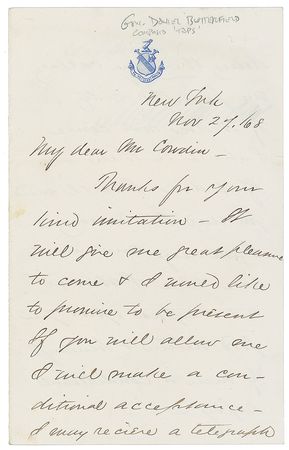 Gen. Daniel Butterfield
composed 'TAPS'
New York
Nov 27/68
My dear Mr Cowdin—
Thanks for your
kind invitation — It
will give me great pleasure
to come & I would like
to promise to be present
If you will allow me
I will make a con-
ditional acceptance—
I may recieve a telegraph